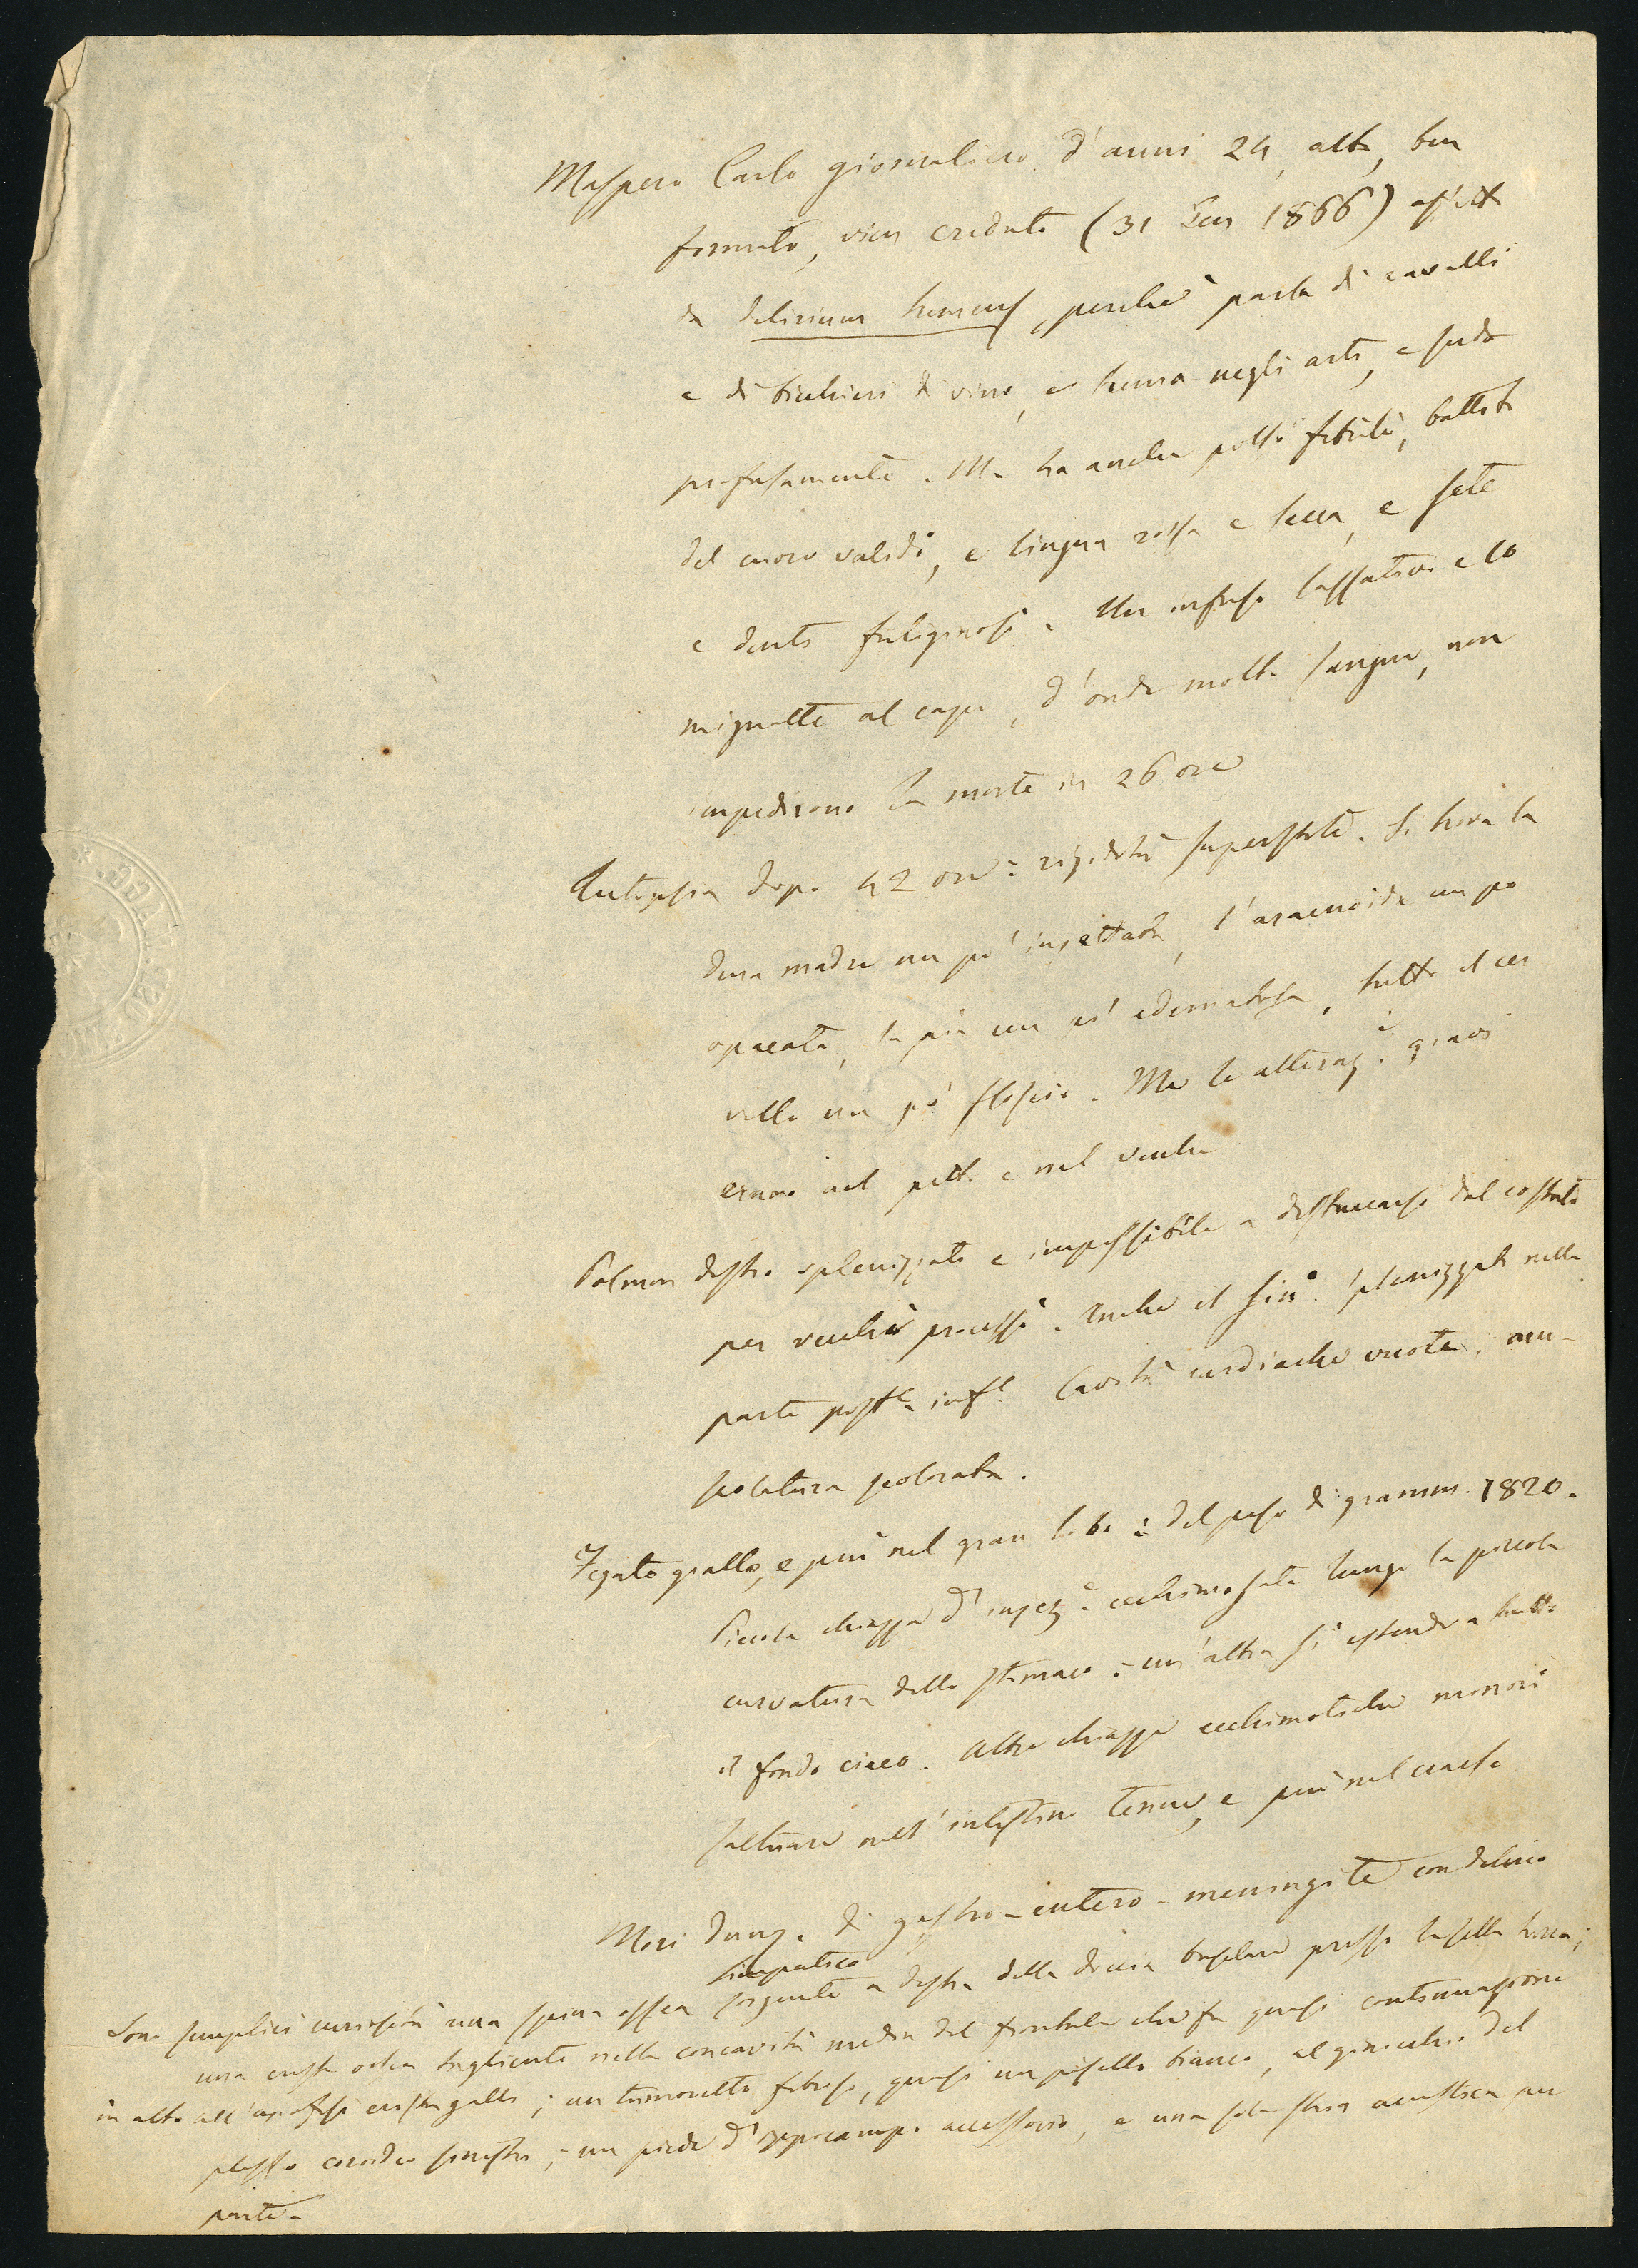 Maspero Carlo giornaliero d'anni 24, alto, ben
formato, vien creduto (31 Gen 1866) affetto
da delirium tremens, perchè parla di cavalli
e di bicchieri di vino, e trema negli arti, e suda
profusamente. Ma ha anche polsi febrili, battito
del cuore valido, e lingua rossa e secca, e sete
e denti fuliginosi. Un infuso lassativo e 10
mignatte al capo, d'onde molto sangue, non
impedirono la morte in 26 ore
Autopsia dopo 42 ore: rigidità superstite. Si trova la
dura madre un pò injettata, l'aracnoide un po
opacata, la pia un pò edematosa, tutto il cer
vello un pò floscio. Ma le alteraz.i gravi
erano nel petto e nel ventre
Polmon destro splenizzato e impossibile a distaccarsi dal costato
per vecchi processi. Anche il sin.o splenizzato nella
parte post.e inf.e Cavità cardiache vuote, mu-
scolatura scolorata.
Fegato giallo, e più nel gran lobo: del peso di gramm. 1820.
Piccola chiazza d'injez.e ecchimosata lungo la piccola
curvatura dello stomaco: un'altra si estende a tutto
il fondo cieco. Altre chiazze ecchimotiche minori
saltuarie nell'intestino tenue, e più nel crasso
Morì dunq.e di gastro-entero-meningite con delirio
simpatico
Sono semplici curiosità una spina ossea sorgente a destra della doccia basilare presso la sella turca;
una cresta ossea tagliente nella concavità media del frontale che fa quasi continuazione
in alto all'apofisi cristagalli; un tumoretto fibroso, quasi un pisello bianco, al ginocchio del
plesso coroideo sinistro; un piede d'ippocampo accessorio, e una sola stria acustica per
parte.